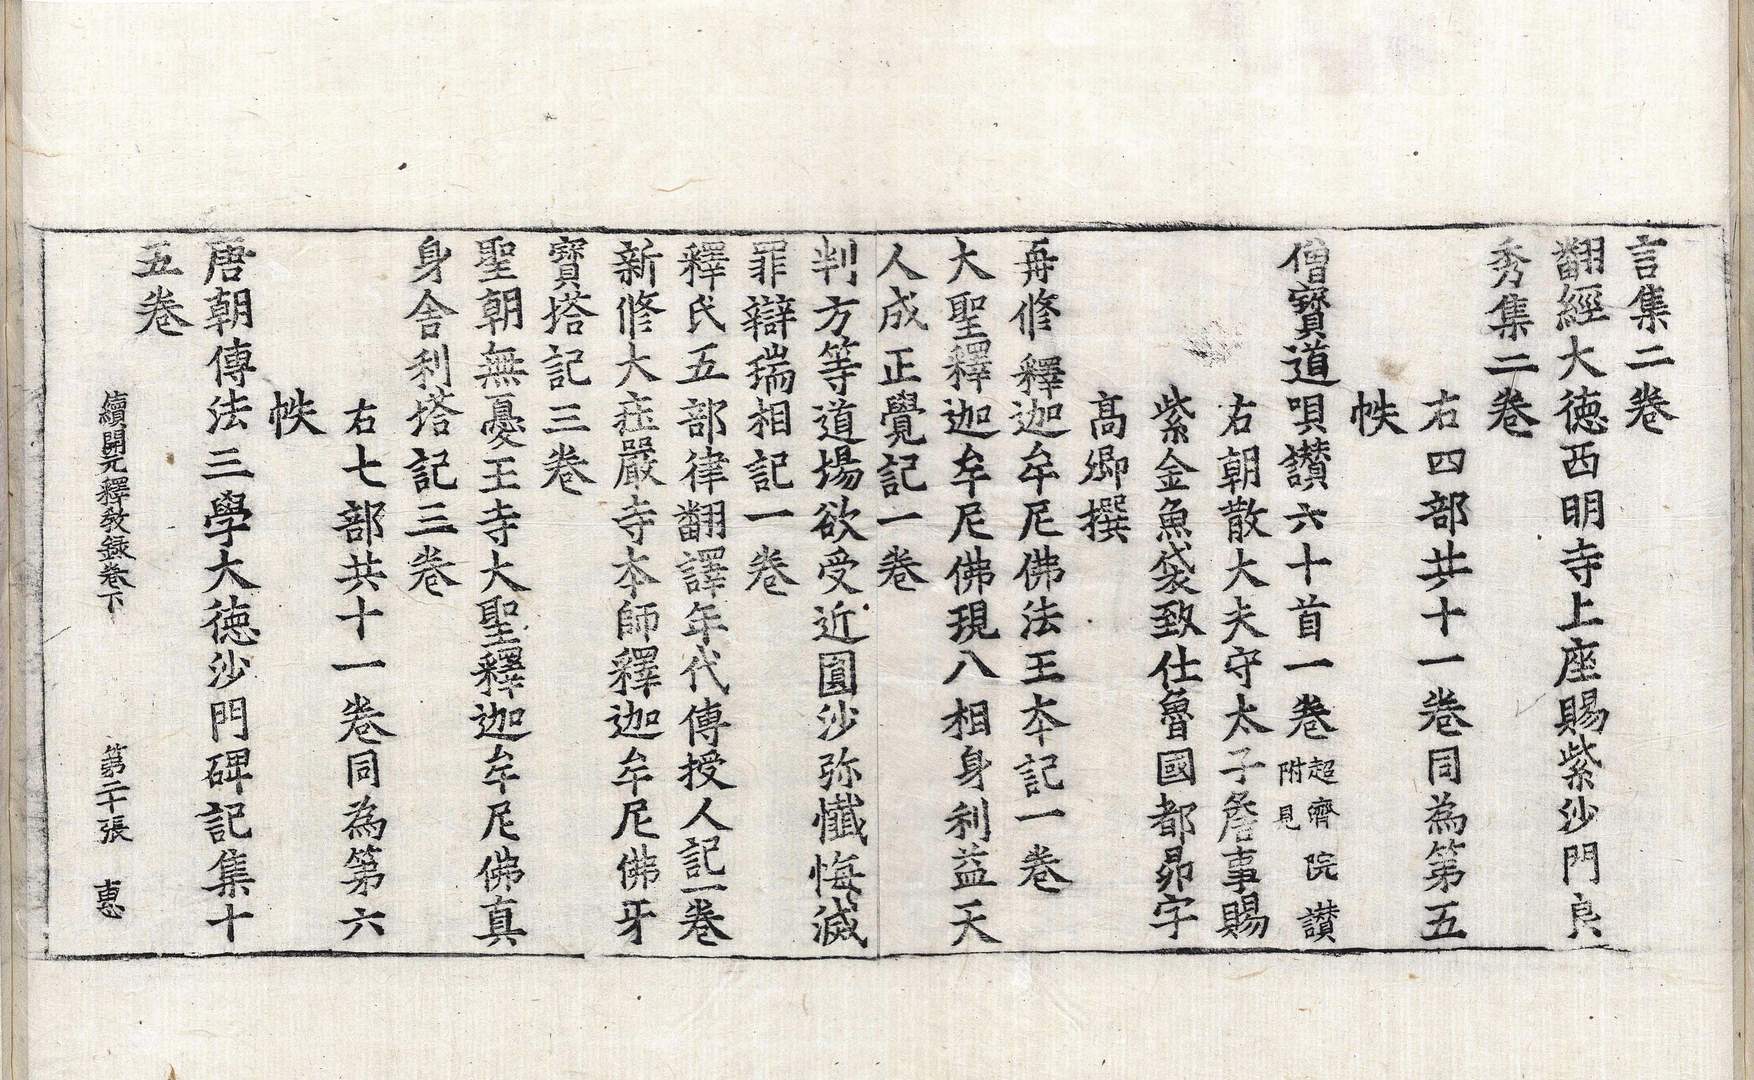 言集二卷
翻經大德西明寺上座賜紫沙門良
秀集二卷
右四部共十一卷同為第五
帙
僧寶道唄讚六十首一卷超齊院讚附見
右朝散大夫守太子詹事賜
紫金魚袋致仕魯國都昂字
高卿撰
再修釋迦牟尼佛法王本記一卷
大聖釋迦牟尼佛現八相身利益天
人成正覺記一卷
判方等道場欲受近圓沙弥懺悔滅
罪辯瑞相記一卷
釋氏五部律翻譯年代傳授人記一卷
新修大莊嚴寺本師釋迦牟尼佛牙
寶塔記三卷
聖朝無憂王寺大聖釋迦牟尼佛真
身舍利塔記三卷
右七部共十一卷同為第六
帙
唐朝傳法三學大德沙門碑記集十
五卷
續開元釋教録卷下 第二十張 惠